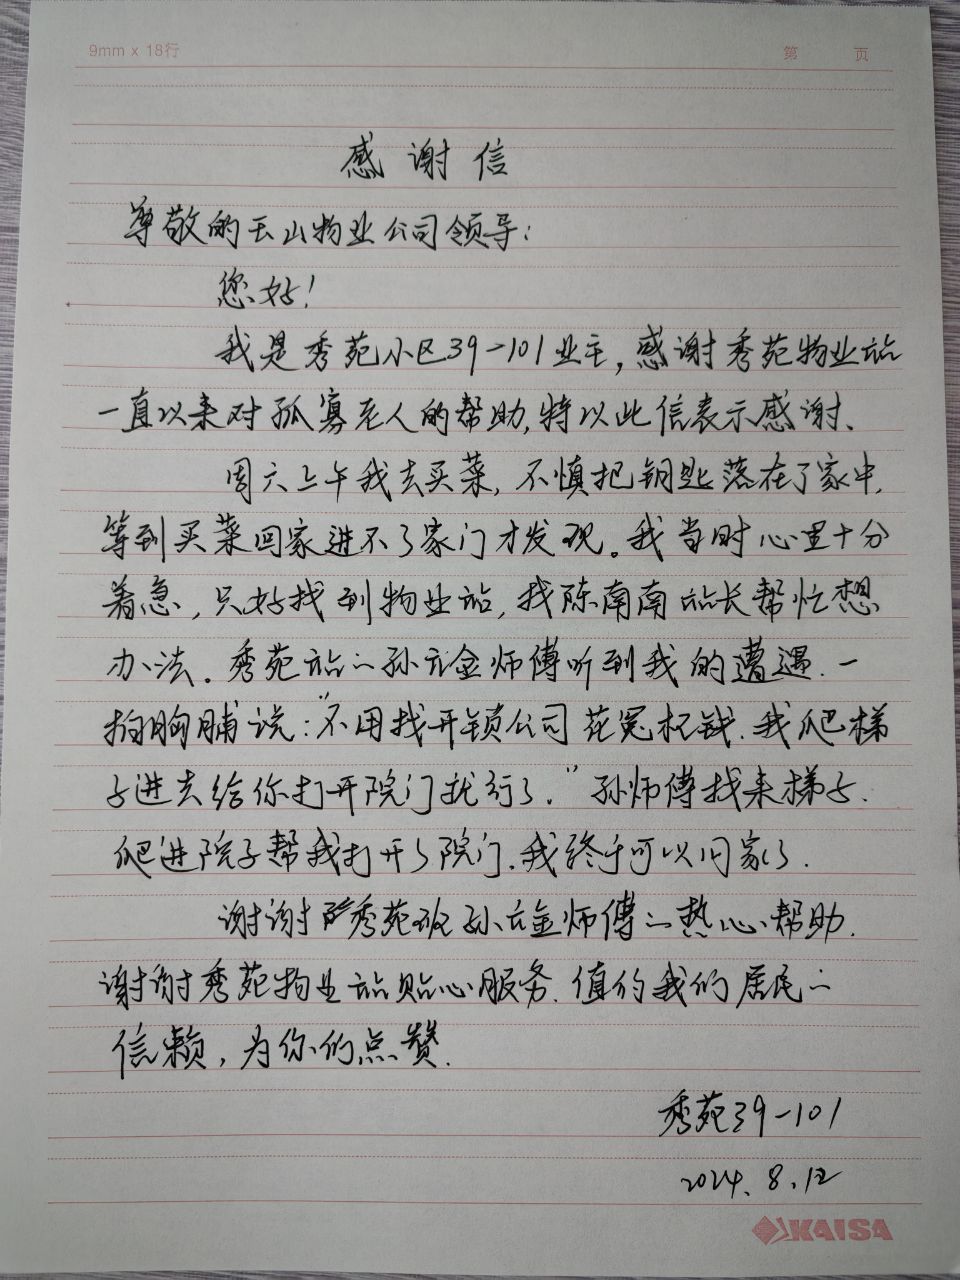 9mm x 18行
第 页
感谢信
尊敬的天山物业公司领导：
您好！
我是秀苑小区39-101业主，感谢秀苑物业站
一直以来对孤寡老人的帮助，特以此信表示感谢、
周六上午我去买菜，不慎把钥匙落在了家中，
等到买菜回家进不了家门才发现。我当时心里十分
着急，只好找到物业站，找陈南南站长帮忙想
办法。秀苑站的孙元金师傅听到我的遭遇.一
拍胸脯说："不用找开锁公司花冤枉钱.我爬梯
子进去给你打开院门就行了."孙师傅找来梯子.
爬进院子帮我打开了院门.我终于可以回家了.
谢谢秀苑班孙元金师傅的热心帮助.
谢谢秀苑物业站贴心服务.值的我们居民的
信赖，为你们点赞.
秀苑39-101
2024.8.12
KAISA